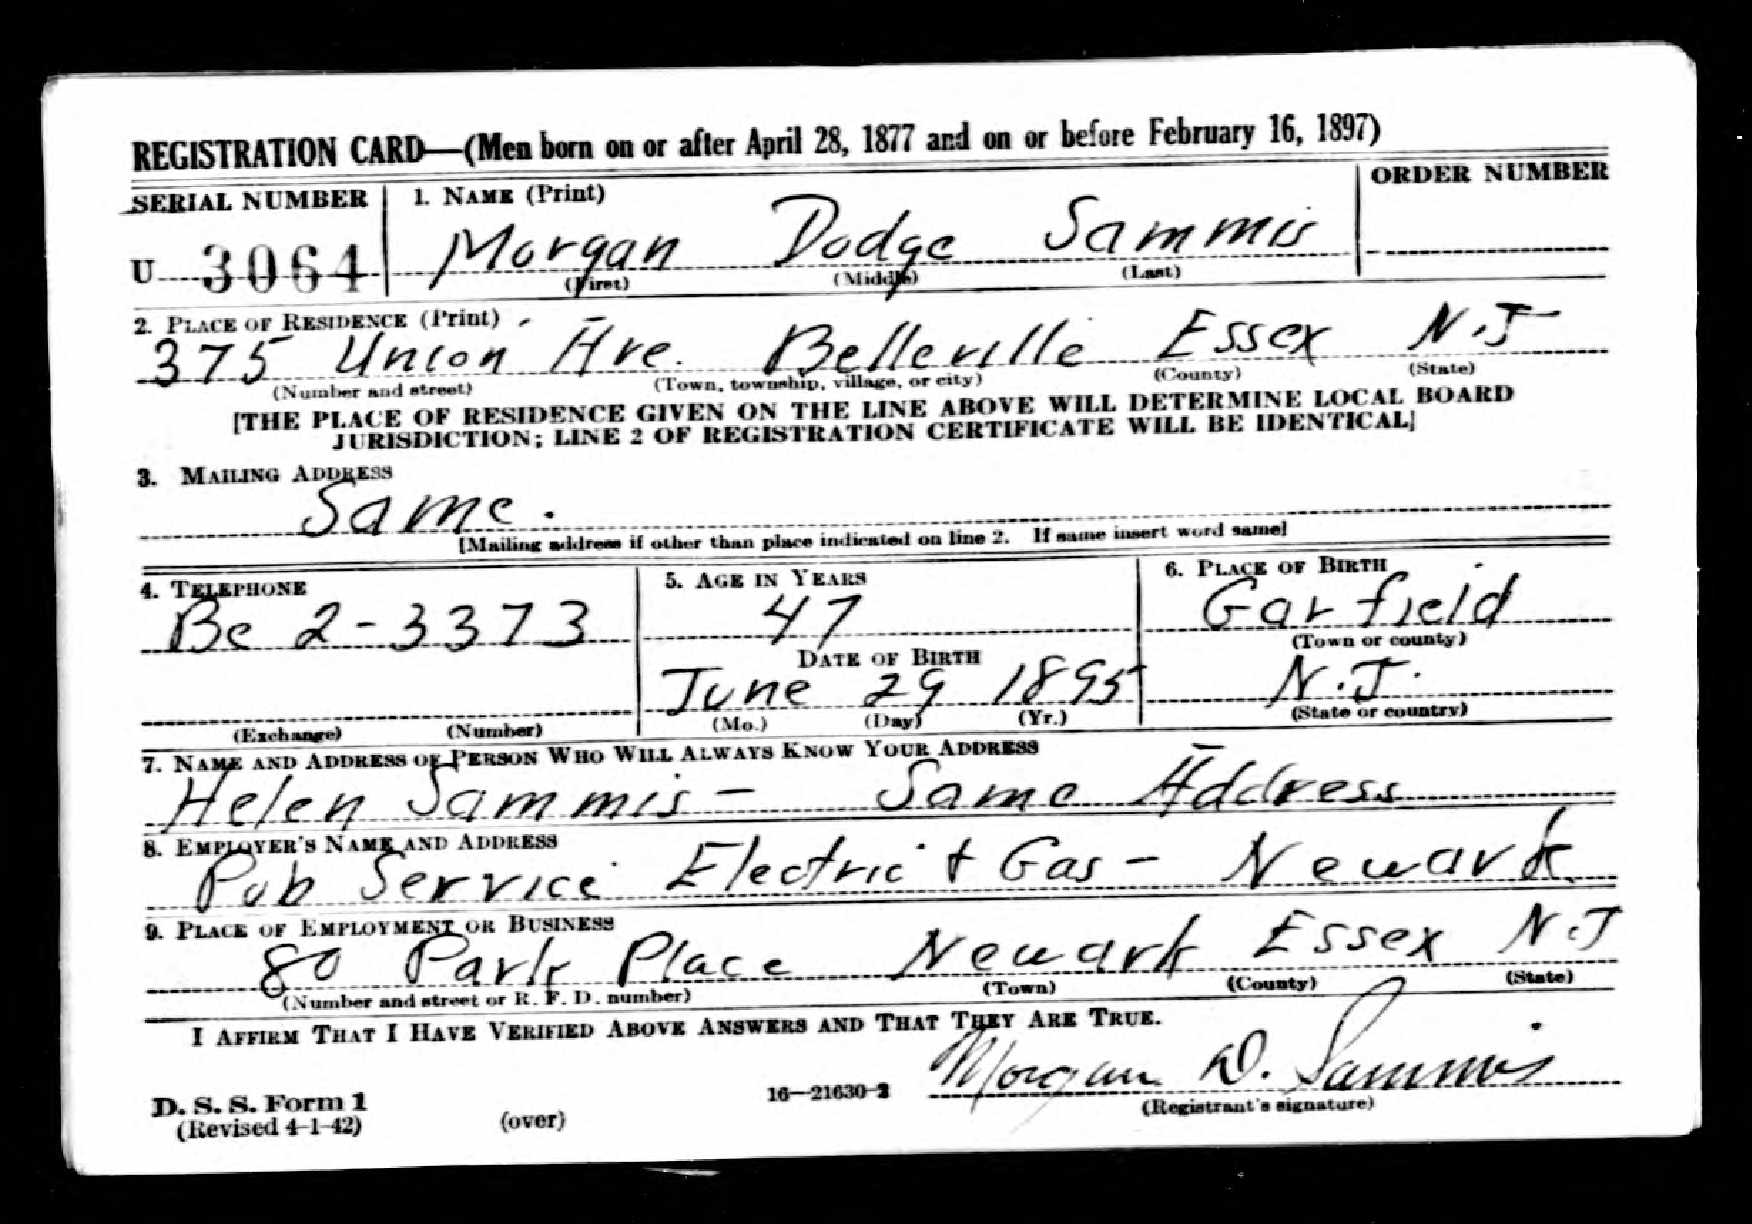 REGISTRATION CARD—(Men born on or after April 28, 1877 and on or before February 16, 1897)
SERIAL NUMBER 1. NAME (Print) ORDER NUMBER
U 3064 Morgan Dodge Sammis
(First) (Middle) (Last)
2. PLACE OF RESIDENCE (Print)
375 Union Ave. Belleville Essex N.J
(Number and street) (Town, township, village, or city) (County) (State)
[THE PLACE OF RESIDENCE GIVEN ON THE LINE ABOVE WILL DETERMINE LOCAL BOARD
JURISDICTION; LINE 2 OF REGISTRATION CERTIFICATE WILL BE IDENTICAL]
3. MAILING ADDRESS
Same.
[Mailing address if other than place indicated on line 2. If same insert word same]
4. TELEPHONE 5. AGE IN YEARS 6. PLACE OF BIRTH
Be 2-3373 47 Garfield
(Town or county)
DATE OF BIRTH
June 29 1895 N.J.
(Exchange) (Number) (Mo.) (Day) (Yr.) (State or country)
7. NAME AND ADDRESS OF PERSON WHO WILL ALWAYS KNOW YOUR ADDRESS
Helen Sammis - Same Address
8. EMPLOYER'S NAME AND ADDRESS
Pub Service Electric + Gas - Newark
9. PLACE OF EMPLOYMENT OR BUSINESS
80 Park Place Newark Essex N.J
(Number and street or R. F. D. number) (Town) (County) (State)
I AFFIRM THAT I HAVE VERIFIED ABOVE ANSWERS AND THAT THEY ARE TRUE.
Morgan D. Sammis
D. S. S. Form 1 16—21630-2 (Registrant's signature)
(Revised 4-1-42) (over)